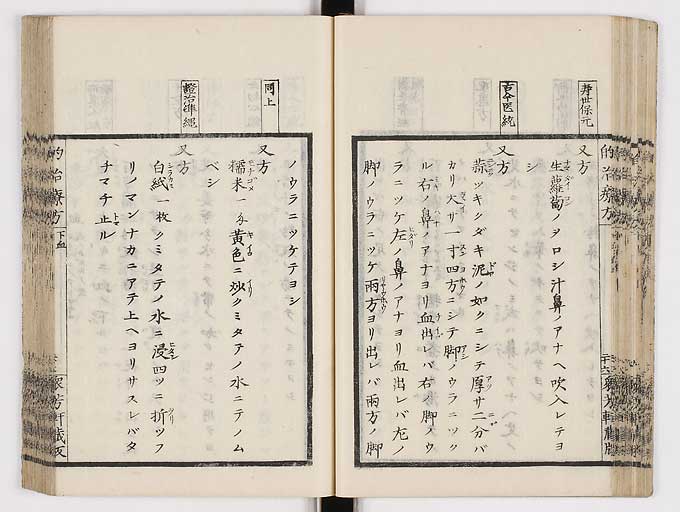 壽世保元
又方
生蘿蔔ノヲロシ汁鼻ノアナヘ吹入レテヨ
シ
古今医統
又方
蒜ツキクダキ泥ノ如クニシテ厚サ二分バ
カリ大サ一寸四方ニシテ脚ノウラニツク
ル右ノ鼻ノアナヨリ血出レバ右ノ脚ノウ
ラニツケ左ノ鼻ノアナヨリ血出レバ左ノ
脚ノウラニツケ兩方ヨリ出レバ兩方ノ脚
的治療方
ノウラニツケテヨシ
同上
又方
糯米一匁黄色ニ炒クミタテノ水ニテノム
ベシ
證治準繩
又方
白紙一枚クミタテノ水ニ浸四ツニ折ツフ
リノマンナカニアテ上ヘヨリサスレバタ
チマチ止ル
的治療方
下血